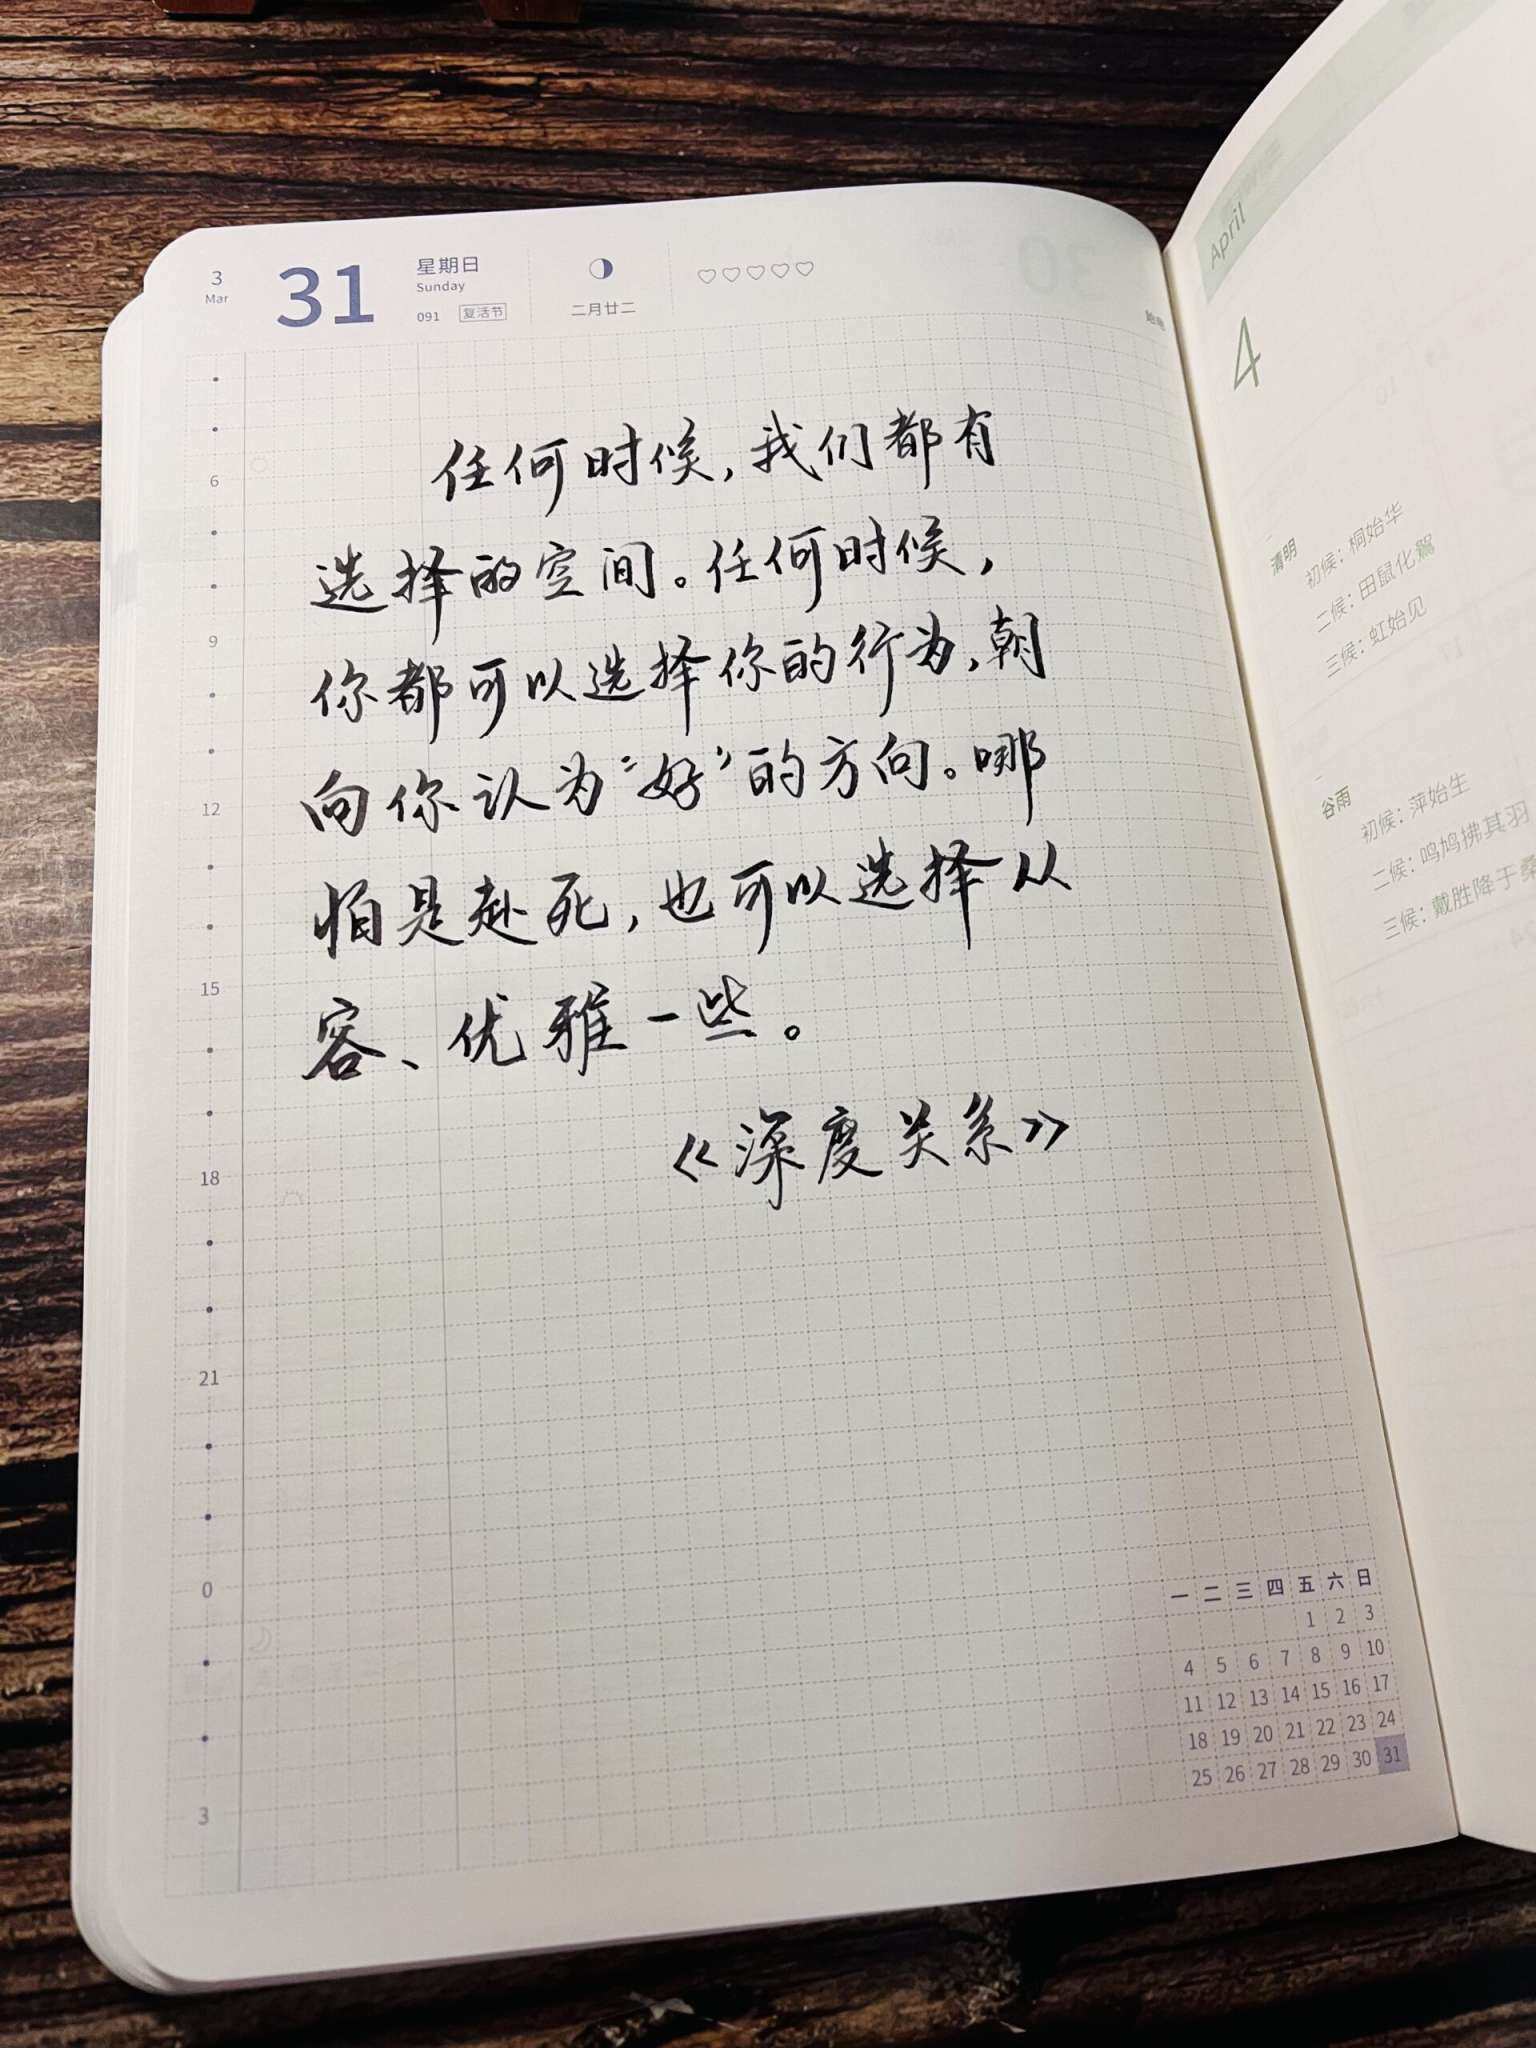 3
Mar
31
星期日
Sunday
091 复活节
二月廿二
任何时候,我们都有
选择的空间。任何时候,
你都可以选择你的行为,朝
向你认为“好”的方向。哪
怕是赴死,也可以选择从
容、优雅一些。
《深度关系》
6
9
12
15
18
21
0
3
一 二 三 四 五 六 日
1 2 3
4 5 6 7 8 9 10
11 12 13 14 15 16 17
18 19 20 21 22 23 24
25 26 27 28 29 30 31
April
4
清明
初候：桐始华
二候：田鼠化鴽
三候：虹始见
谷雨
初候：萍始生
二候：鸣鸠拂其羽
三候：戴胜降于桑